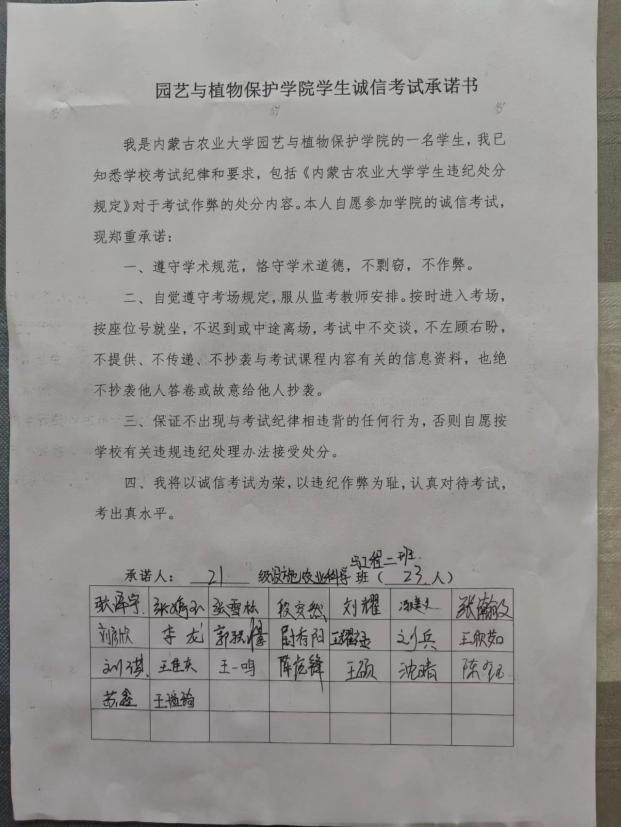 园艺与植物保护学院学生诚信考试承诺书
我是内蒙古农业大学园艺与植物保护学院的一名学生，我已
知悉学校考试纪律和要求，包括《内蒙古农业大学学生违纪处分
规定》对于考试作弊的处分内容。本人自愿参加学院的诚信考试，
现郑重承诺：
一、遵守学术规范，恪守学术道德，不剽窃，不作弊。
二、自觉遵守考场规定，服从监考教师安排。按时进入考场，
按座位号就坐，不迟到或中途离场，考试中不交谈，不左顾右盼，
不提供、不传递、不抄袭与考试课程内容有关的信息资料，也绝
不抄袭他人答卷或故意给他人抄袭。
三、保证不出现与考试纪律相违背的任何行为，否则自愿按
学校有关违规违纪处理办法接受处分。
四、我将以诚信考试为荣，以违纪作弊为耻，认真对待考试，
考出真水平。
与工程二班
承诺人： 21 级设施农业科学 班（ 23 人）
张雪松 段安然 刘耀
刘彦欣 李龙 尉有阳 刘兵 王欣茹
刘琪 王一鸣 王硕 沈晴
苏鑫